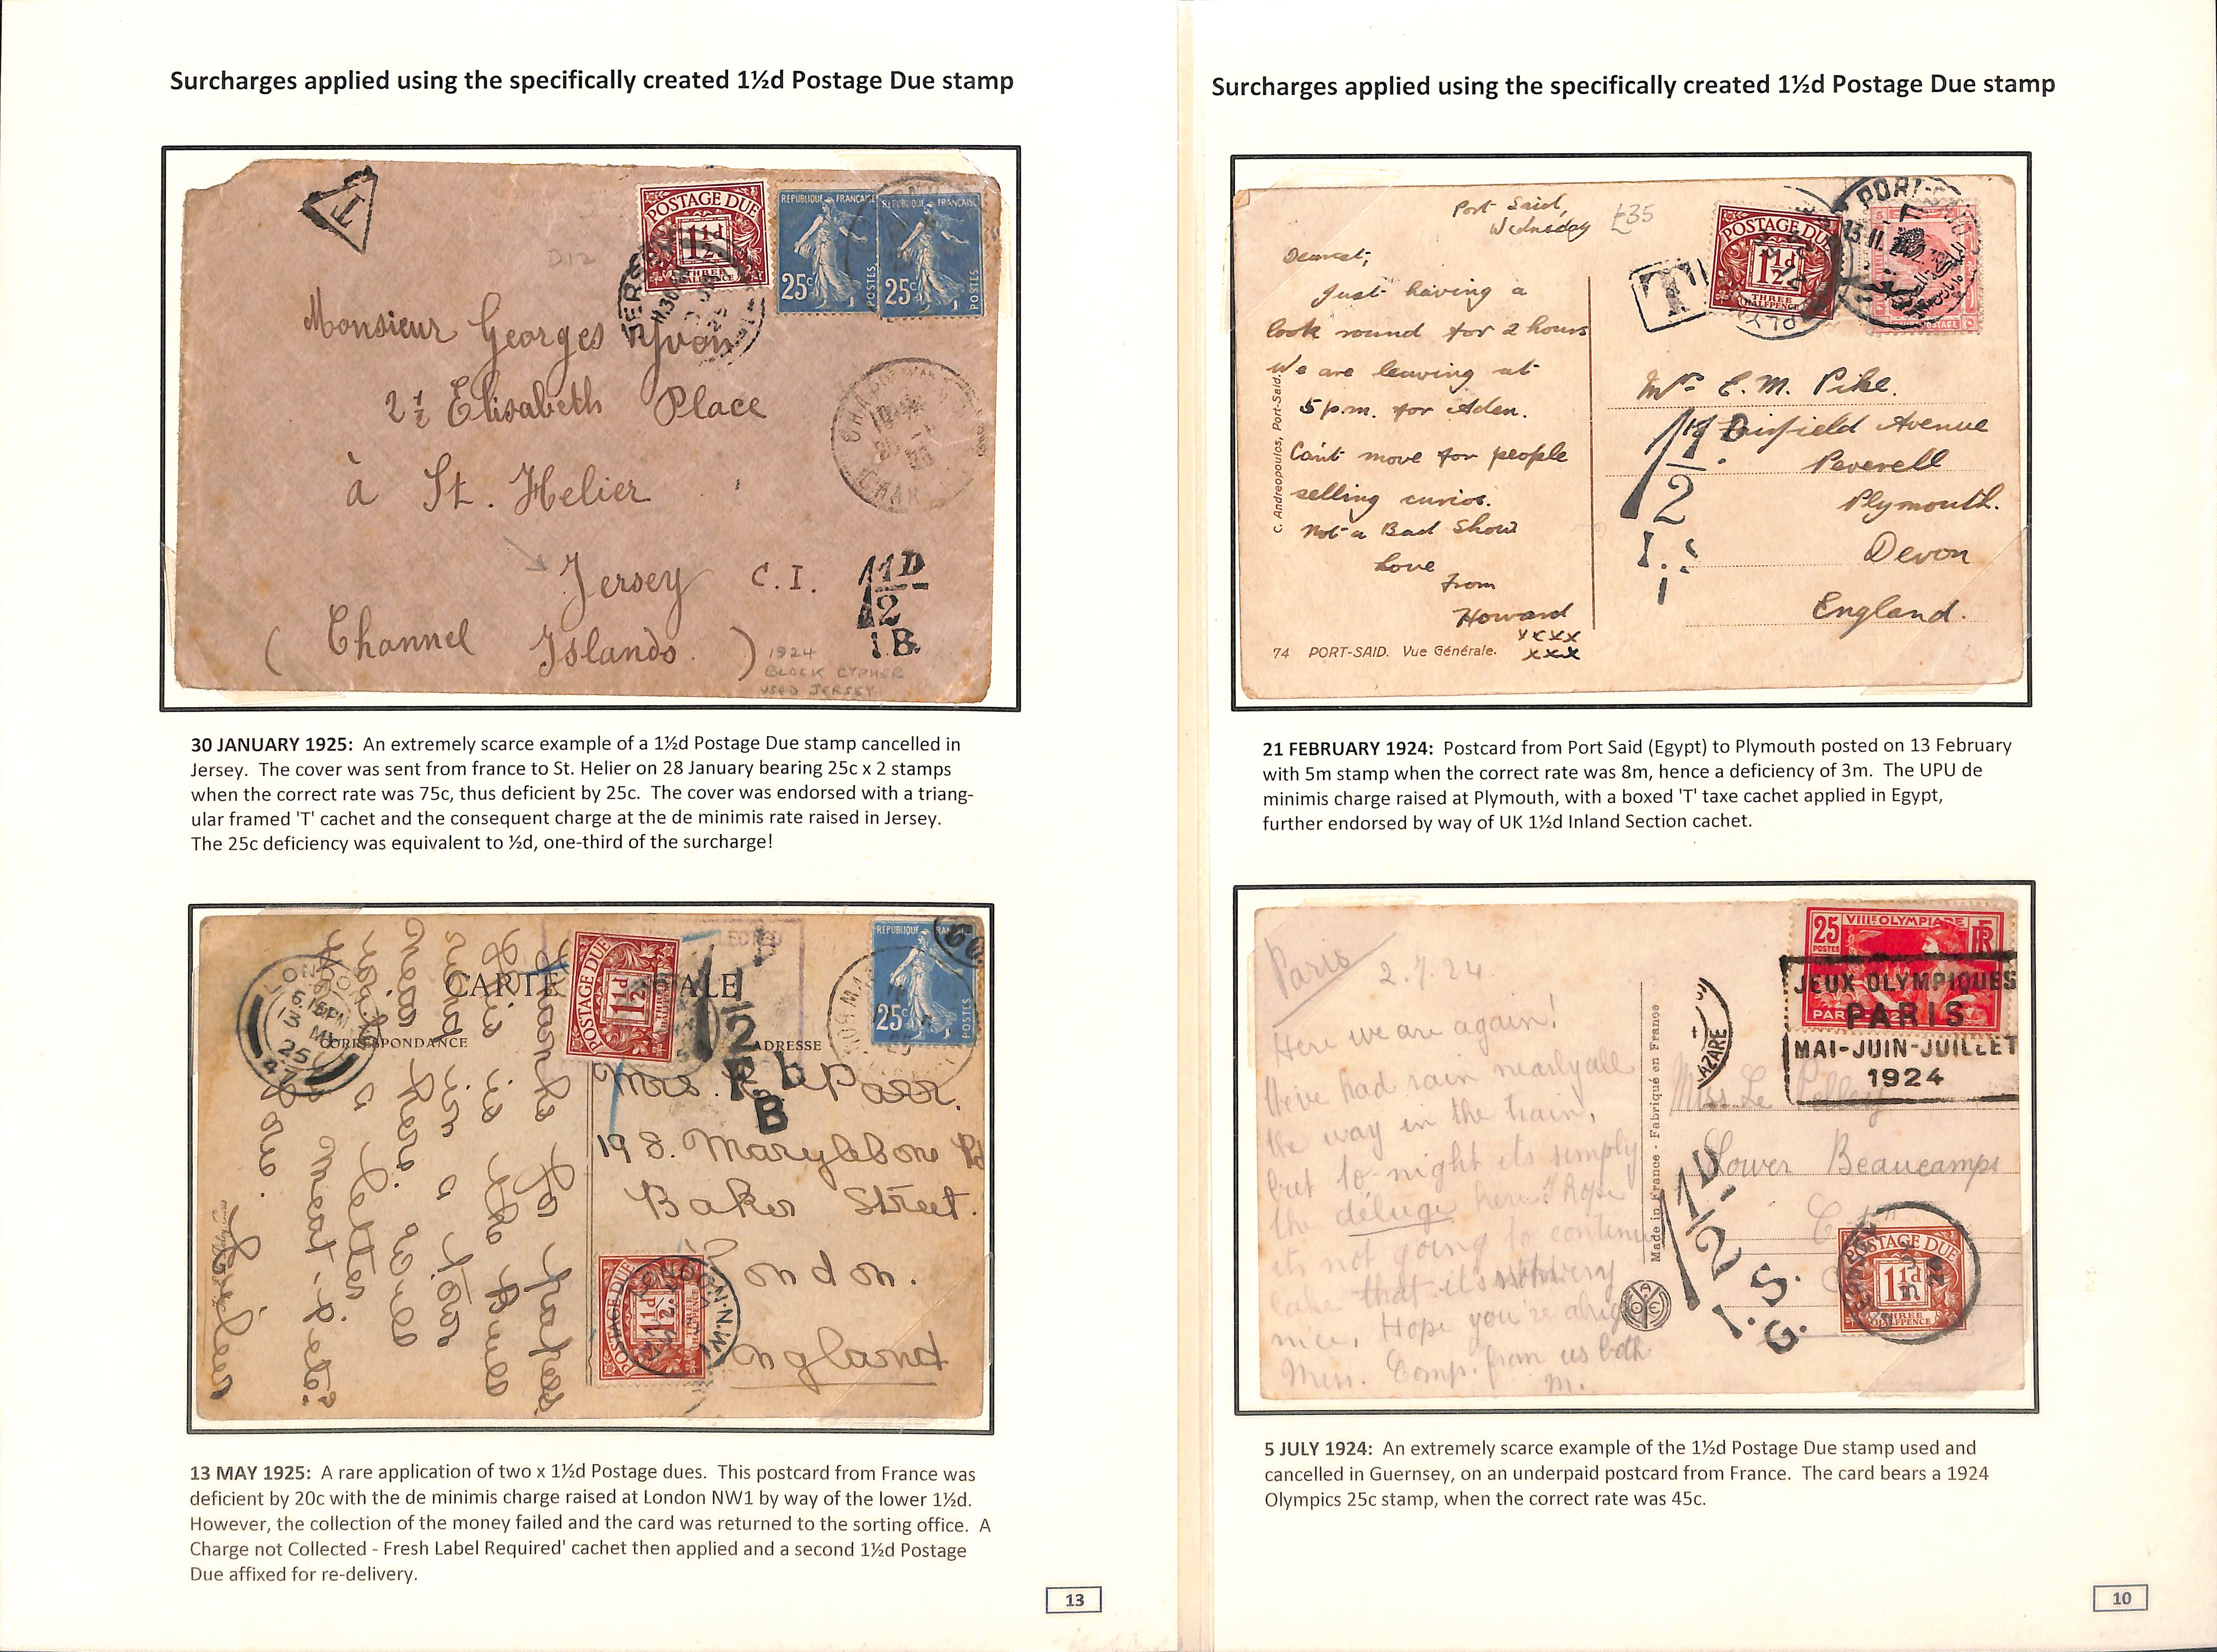 Surcharges applied using the specifically created 1½d Postage Due stamp
T
POSTAGE DUE
1½d
THREE
HALFPENCE
REPUBLIQUE FRANÇAISE
25c
POSTES
REPUBLIQUE FRANÇAISE
25c
POSTES
JERSEY
D12
Monsieur Georges Yvon
2½ Elisabeth Place
à St. Helier
Jersey C.I.
(Channel Islands.)
1½D
I.B.
1924
BLOCK CYPHER
USED JERSEY
30 JANUARY 1925: An extremely scarce example of a 1½d Postage Due stamp cancelled in
Jersey. The cover was sent from france to St. Helier on 28 January bearing 25c x 2 stamps
when the correct rate was 75c, thus deficient by 25c. The cover was endorsed with a triang-
ular framed 'T' cachet and the consequent charge at the de minimis rate raised in Jersey.
The 25c deficiency was equivalent to ½d, one-third of the surcharge!
LONDON
6 15PM
13 MY
25
47
CARTE POSTALE
CORRESPONDANCE
ADRESSE
POSTAGE DUE
1½d
REPUBLIQUE FRANÇAISE
25c
POSTES
B
Mrs. Parr.
198. Marylebone Rd
Baker Street.
London.
England
Thanks for papers
this is the Bull
ring in a town
near here. will
write a letter
POSTAGE DUE
1½d
LONDON.N.W.1
13 MAY 1925: A rare application of two x 1½d Postage dues. This postcard from France was
deficient by 20c with the de minimis charge raised at London NW1 by way of the lower 1½d.
However, the collection of the money failed and the card was returned to the sorting office. A
Charge not Collected - Fresh Label Required' cachet then applied and a second 1½d Postage
Due affixed for re-delivery.
13
Surcharges applied using the specifically created 1½d Postage Due stamp
Port Said,
Wednesday
£35
Dearest,
Just having a
look round for 2 hours
We are leaving at
5 p.m. for Aden.
Can't move for people
selling curios.
Not a Bad Show
Love
from
Howard
xxxx
xxx
C. Andreopoulos, Port-Said.
74 PORT-SAID. Vue Générale.
T
POSTAGE DUE
1½d
THREE
HALFPENCE
PORT-SAID
13.II.24
POSTAGE
Mrs E. M. Pike.
Fairfield Avenue
Peverell
Plymouth.
Devon
England.
1½D.
I.S.
21 FEBRUARY 1924: Postcard from Port Said (Egypt) to Plymouth posted on 13 February
with 5m stamp when the correct rate was 8m, hence a deficiency of 3m. The UPU de
minimis charge raised at Plymouth, with a boxed 'T' taxe cachet applied in Egypt,
further endorsed by way of UK 1½d Inland Section cachet.
Paris 2.7.24.
Here we are again!
We've had rain nearly all
the way in the train,
but to-night its simply
the déluge here. I hope
it's not going to continue
like that it's not very
nice, Hope you're alright
Miss. Comp. from us both
M.
Made in France - Fabriqué en France
25
POSTES
VIIIe OLYMPIADE
RF
JEUX OLYMPIQUES
PARIS
MAI-JUIN-JUILLET
1924
Miss Le Pelley
Lower Beaucamps
1½D.
I.S.
G.
POSTAGE DUE
1½d
THREE
HALFPENCE
5 JULY 1924: An extremely scarce example of the 1½d Postage Due stamp used and
cancelled in Guernsey, on an underpaid postcard from France. The card bears a 1924
Olympics 25c stamp, when the correct rate was 45c.
10